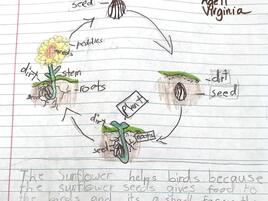 seed
Virginia
peddles
seeds
dirt
stem
roots
seed
dirt
seed
Plant
dirt
roots
seed
The sunflower helps birds because
the sunflower seeds gives food to
the birds and its a